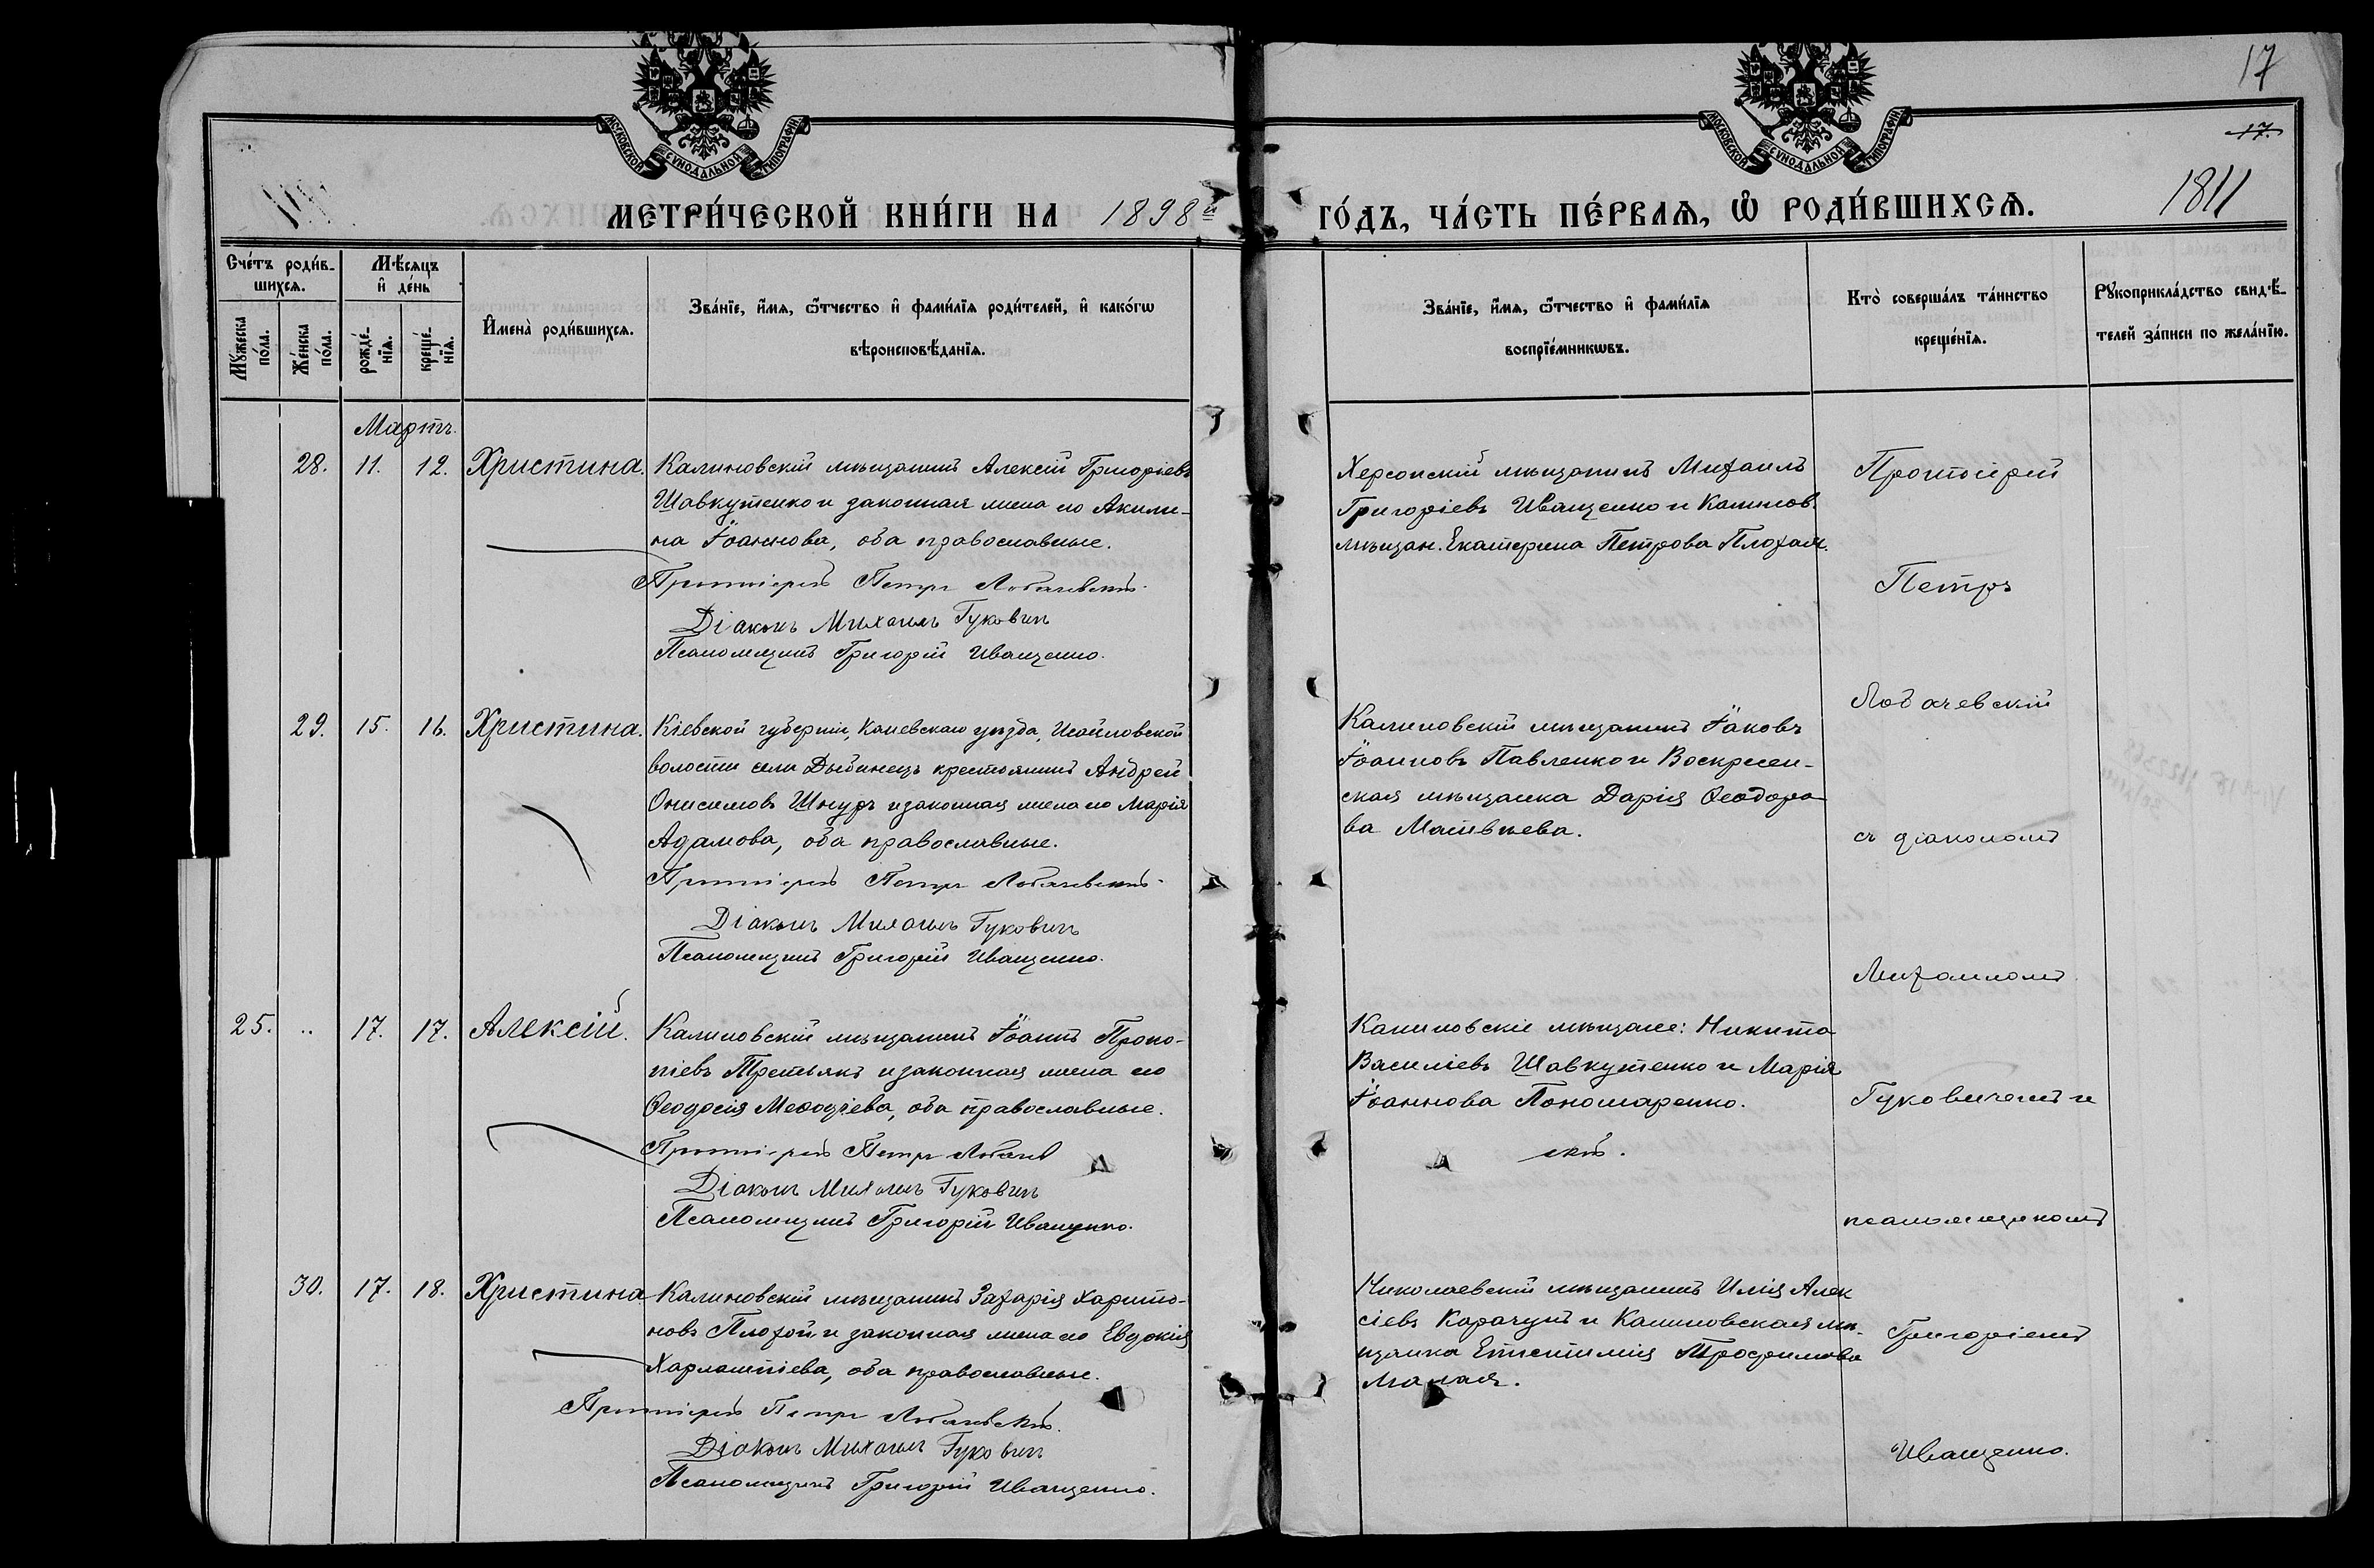 17
17.
1811
МОСКОВСКОЙ СУНОДАЛЬНОЙ ТИПОГРАФІИ
МОСКОВСКОЙ СУНОДАЛЬНОЙ ТИПОГРАФІИ
МЕТРИ́ЧЕСКОЙ КНИ́ГИ НА 1898й ГО́ДЪ, ЧА́СТЬ ПЕ́РВАѦ, Ѡ РОДИ́ВШИХСѦ.
Сче́тъ роди́в-
шихсѧ.
Мꙋжеска по́ла.
Же́нска по́ла.
Мѣ́сѧцъ
и҆ де́нь
рожде́-нїѧ.
креще́-нїѧ.
И҆мена̀ роди́вшихсѧ.
Зва́нїе, и҆́мѧ, ѻ҆́тчество и҆ фами́лїѧ роди́телей, и҆ како́гѡ
вѣроисповѣ́данїѧ.
Зва́нїе, и҆́мѧ, ѻ҆́тчество и҆ фами́лїѧ
воспрїе́мникѡвъ.
Кто̀ соверша́лъ та́инство
креще́нїѧ.
Рꙋкоприкла́дство свидѣ́-
телей за́писи по жела́нїю.
Мартъ.
28. 11. 12. Христина. Калиновскій мѣщанинъ Алексій Григоріевъ
Шавкутенко и законная жена его Акили-
на Іоаннова, оба православные.
Протоіерей Петръ Лобачевскій.
Діаконъ Михаилъ Гуковичъ
Псаломщикъ Григорій Иващенко.
Херсонскій мѣщанинъ Михаилъ
Григоріевъ Иващенко и Калинов.
мѣщан. Екатерина Петрова Плохая.
29. 15. 16. Христина. Кіевской губерніи, Каневскаго уѣзда,
волости села Дыбинецъ крестьянинъ Андрей
Онисимовъ Шнуръ и законная жена его Марія
Адамова, оба православные.
Протоіерей Петръ Лобачевскій.
Діаконъ Михаилъ Гуковичъ
Псаломщикъ Григорій Иващенко.
Калиновскій мѣщанинъ Іаковъ
Іоанновъ Павленко и Воскресен-
ская мѣщанка Дарія Ѳеодоро-
ва Матвѣева.
25. .. 17. 17. Алексій. Калиновскій мѣщанинъ Іоаннъ Проко-
піевъ Третьякъ и законная жена его
Ѳеодосія Меѳодіева, оба православные.
Протоіерей Петръ Лобачев
скій.
Діаконъ Михаилъ Гуковичъ
Псаломщикъ Григорій Иващенко.
Калиновскіе мѣщане: Никита
Василіевъ Шавкутенко и Марія
Іоаннова Пономаренко.
30. 17. 18. Христина Калиновскій мѣщанинъ Захарія Харито-
новъ Плохой и законная жена его Евдокія
Харлампіева, оба православные.
Протоіерей Петръ Лобачевскій.
Діаконъ Михаилъ Гуковичъ
Псаломщикъ Григорій Иващенко.
Николаевскій мѣщанинъ Илія Алек
сіевъ Карачунъ и Калиновская мѣ-
щанка Епистимія Трофимова
Малая.
Протоіерей
Петръ
Лобачевскій
съ діакономъ
Михаиломъ
Гуковичемъ и
псаломщикомъ
Григоріемъ
Иващенко.